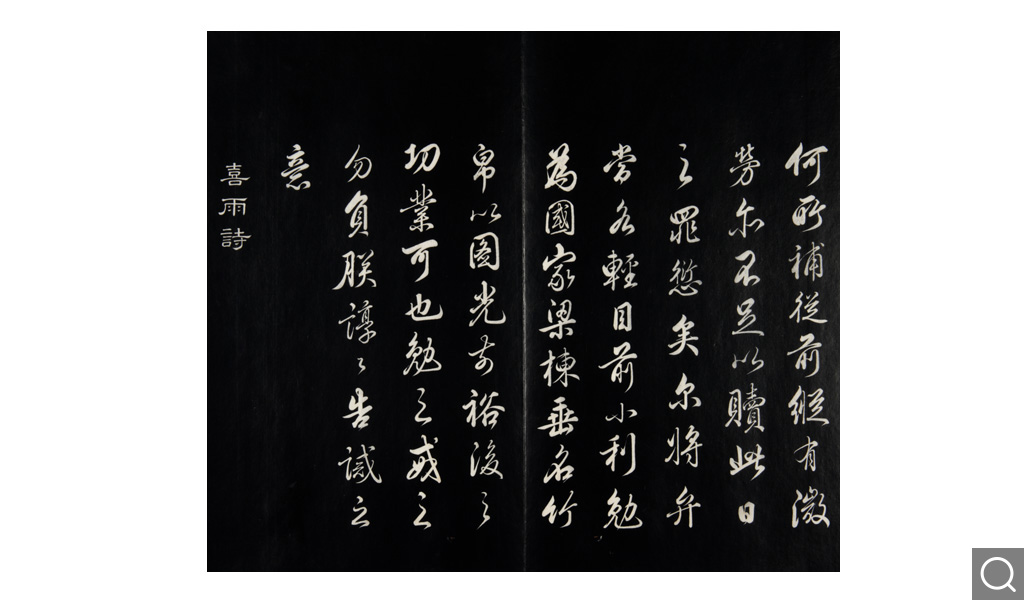 何所補從前縱有微
勞亦不足以贖此日
之罪愆矣尔將弁
當各輕目前小利勉
為國家梁棟垂名竹
帛以圖光前裕後之
切業可也勉之戒之
勿負朕諄々告誡之
意
喜雨詩